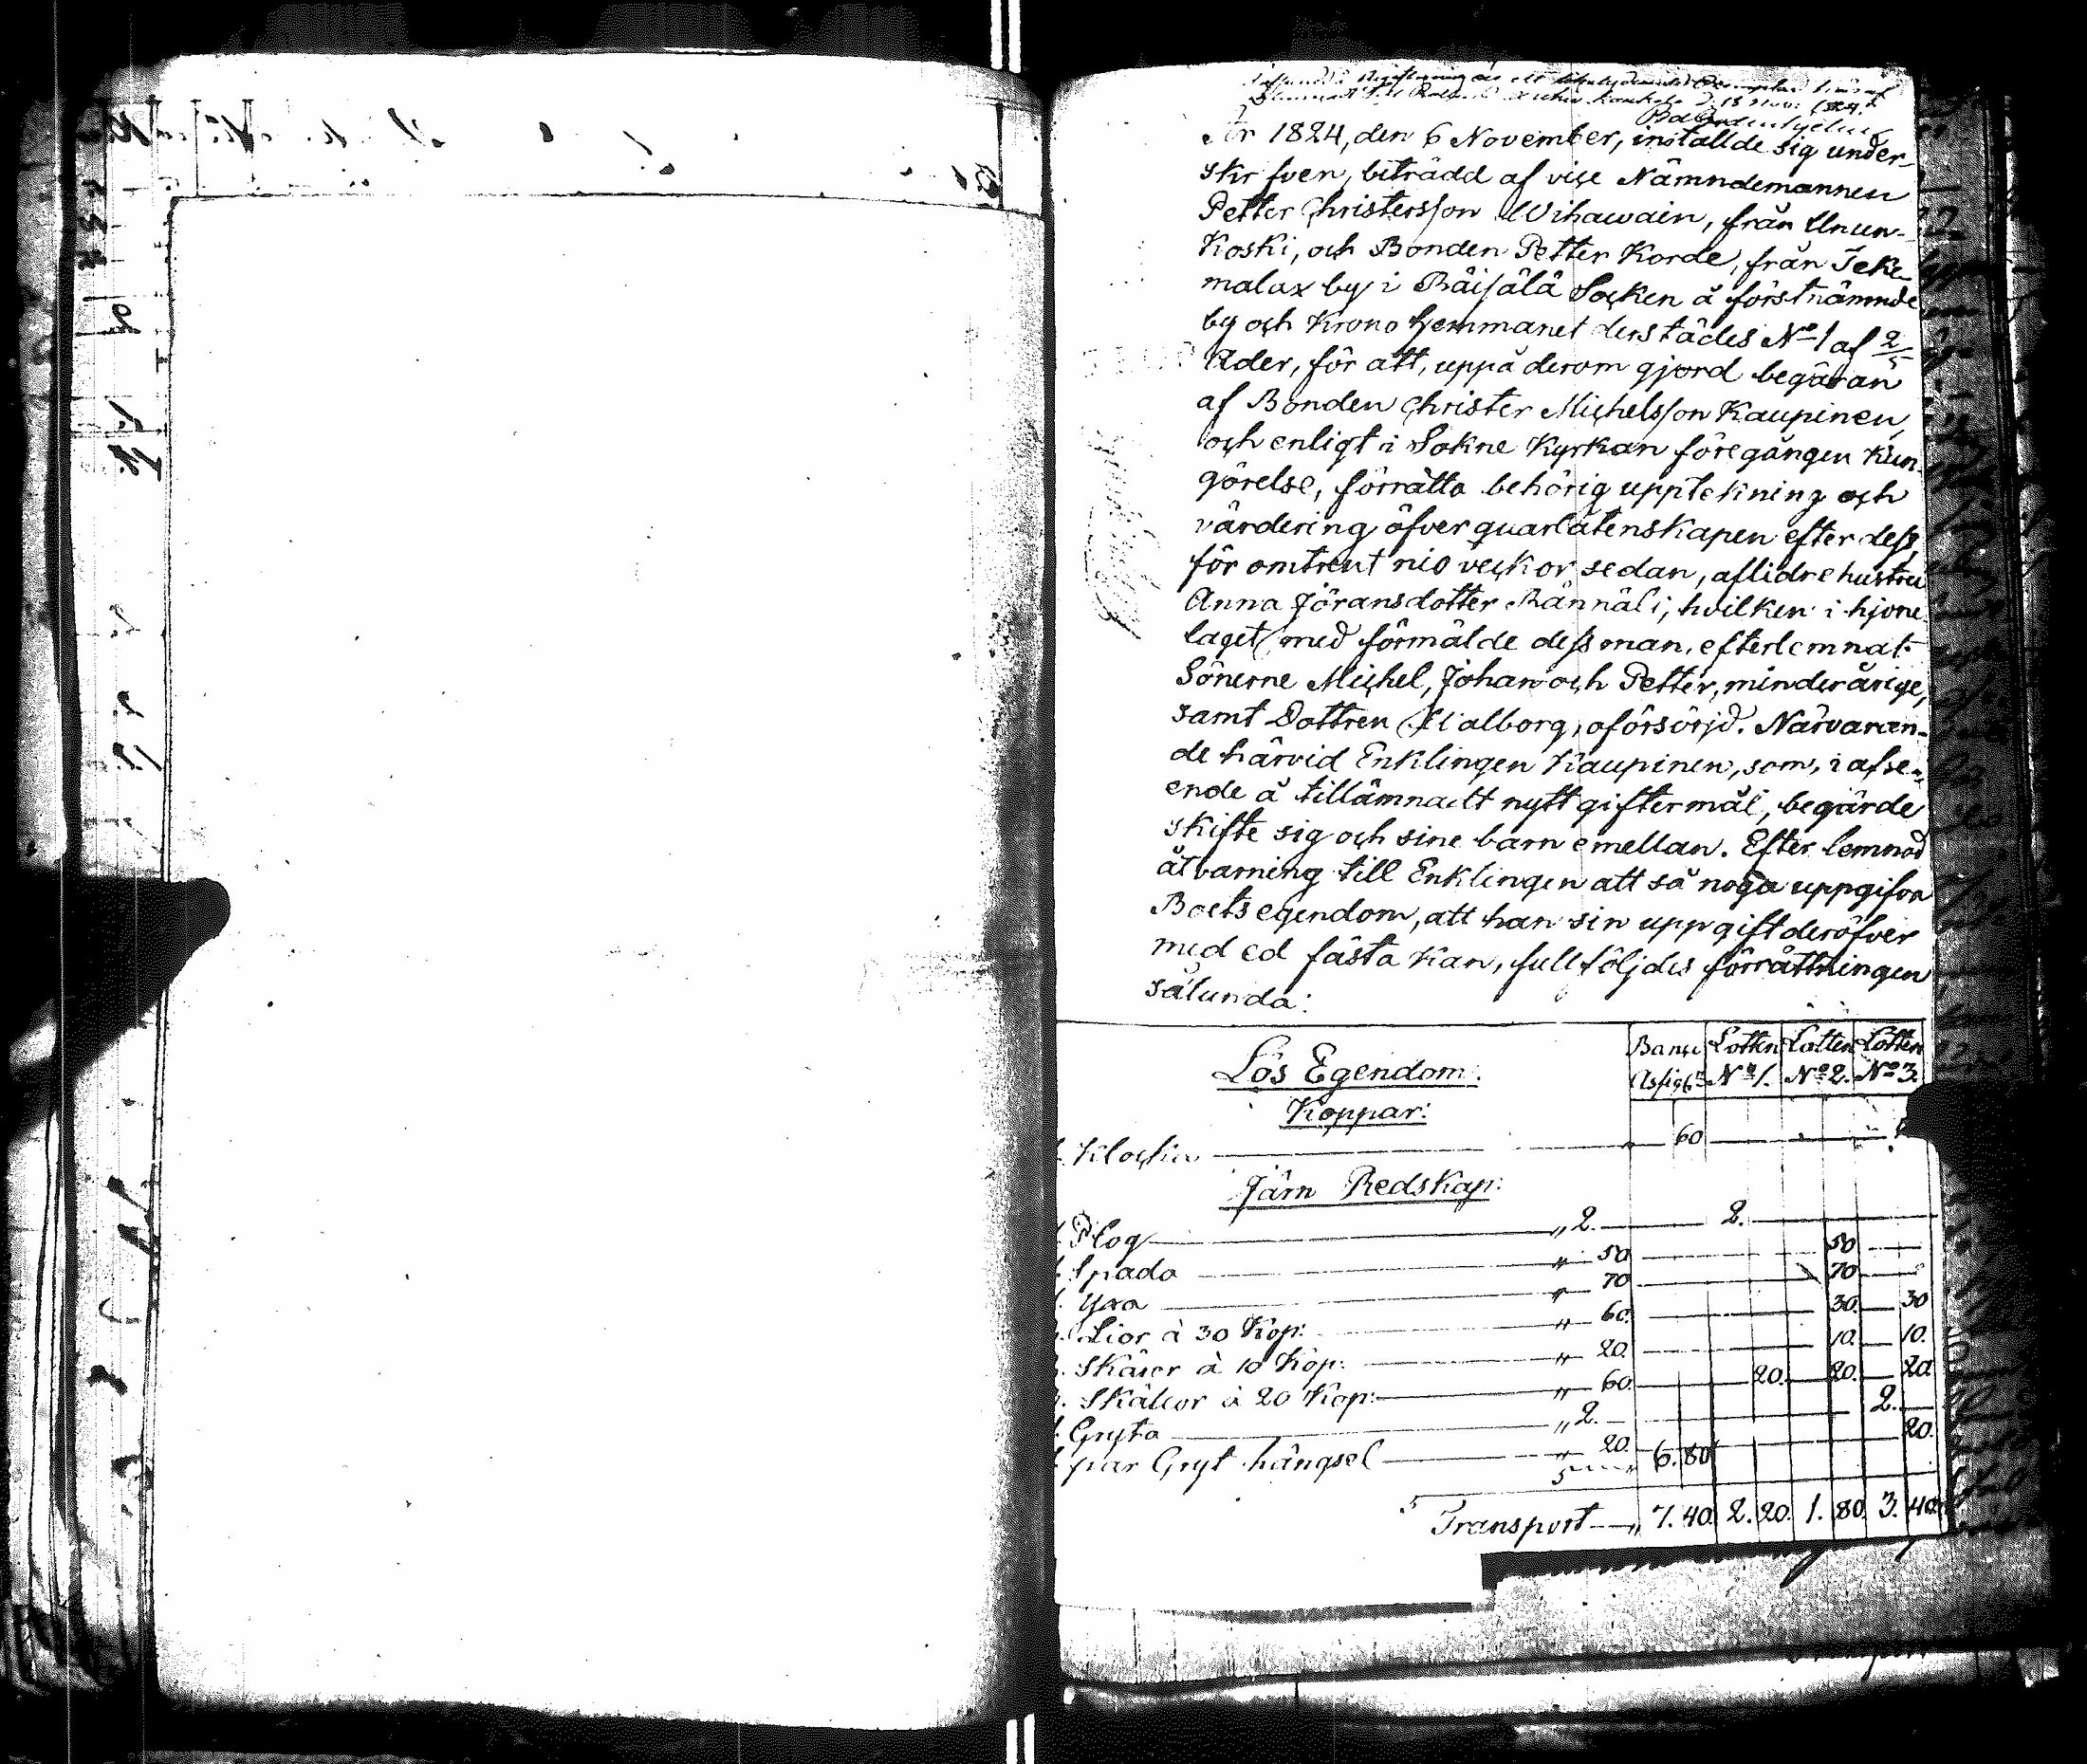 År 1824, den 6 November, inställde sig under-
skrifven, biträdd af vice Nämndemannen
Petter Christersson Wihawain, från Unun-
Koski, och Bonden Petter Korde, från Teke-
malax by i Räisälä Socken å förstnämnde
by och Krono Hemmanet derstädes No 1 af 2/5
Ader, för att, uppå derom gjord begäran
af Bonden Christer Michelsson Kaupinen,
och enligt i Sokne Kyrkan föregången Kun-
görelse, förrätta behörig uppteckning och
värdering öfver quarlåtenskapen efter dess,
för omtrent nio veckor sedan, aflidne hustru
Anna Jöransdotter Rännäli, hvilken i hjone-
laget med förmälde dess man, efterlemnat
Sönerne Michel, Johan och Petter, minderårige,
samt Dottren Walborg, oförsörjd. Närvaran-
de härvid Enklingen Kaupinen, som, i afse-
ende å tillämnadt nytt giftermål, begärde
skifte sig och sine barn emellan. Efter lemnad
åtvarning till Enklingen att så noga uppgifva
Boets egendom, att han sin uppgift deröfver
med ed fästa kan, fullföljdes förrättningen
sålunda:
Lös Egendom: Banco Assig. Lotten No 1. Lotten No 2. Lotten No 3.
Koppar:
1. Klocka " 60
Järn Redskap:
1. Plog " 2. 2.
1. Spada " 50 50
1. Yxa " 70 70
2. Lior à 30 Kop: " 60. 30. 30
2. Skäror à 10 Kop: " 20. 10. 10.
3. Skälcor à 20 Kop: " 60. 20. 20. 20
1. Gryta " 2. 2.
1 par Gryt hängsel " 20. 6. 80 20.
Transport " 7. 40. 2. 20. 1. 80. 3. 40.